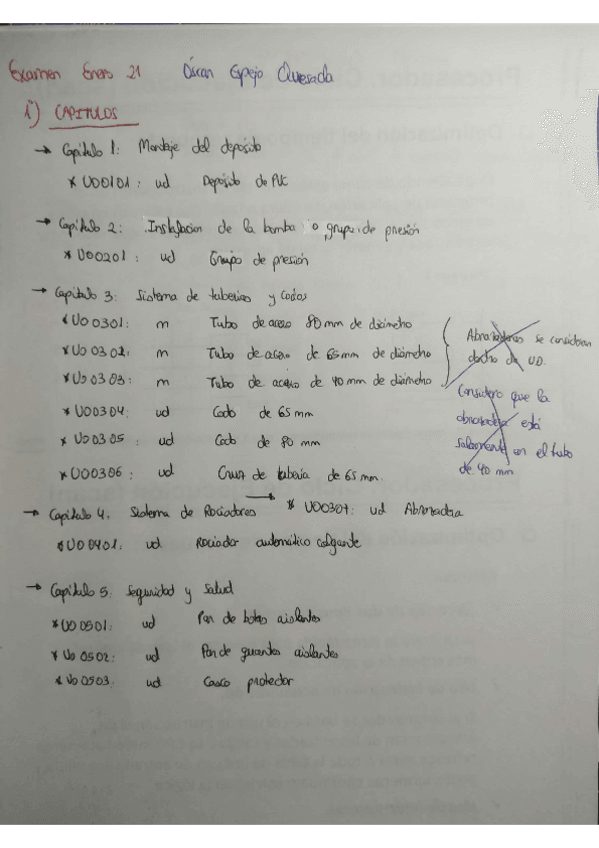 Examen Enero 21 Óscar Espejo Quesada
1) CAPITULOS
→ Capítulo 1: Montaje del depósito
* U00101: ud Depósito de PVC
→ Capítulo 2: Instalacion de la bomba o grupo de presión
* U00201: ud Grupo de presión
→ Capítulo 3: Sistema de tuberias y codos
* U00301: m Tubo de acero 80 mm de diámetro
* U00302: m Tubo de acero de 65 mm de diámetro
* U00303: m Tubo de acero de 40 mm de diámetro
Abrazaderas se consideran
dentro de UD.
Considero que la
abrazadera está
solamente en el tubo
de 40 mm
* U00304: ud Codo de 65 mm
* U00305: ud Codo de 80 mm
* U00306: ud Cruz de tuberia de 65 mm.
→ * U00307: ud Abrazadera
→ Capítulo 4: Sistema de Rociadores
* U00401: ud Rociador automático colgante
→ Capítulo 5: Seguridad y Salud
* U00501: ud Par de botas aislantes
* U00502: ud Par de guantes aislantes
* U00503: ud Casco protector